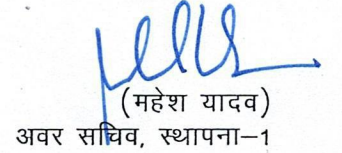 (महेश यादव)
अवर सचिव, स्थापना–1